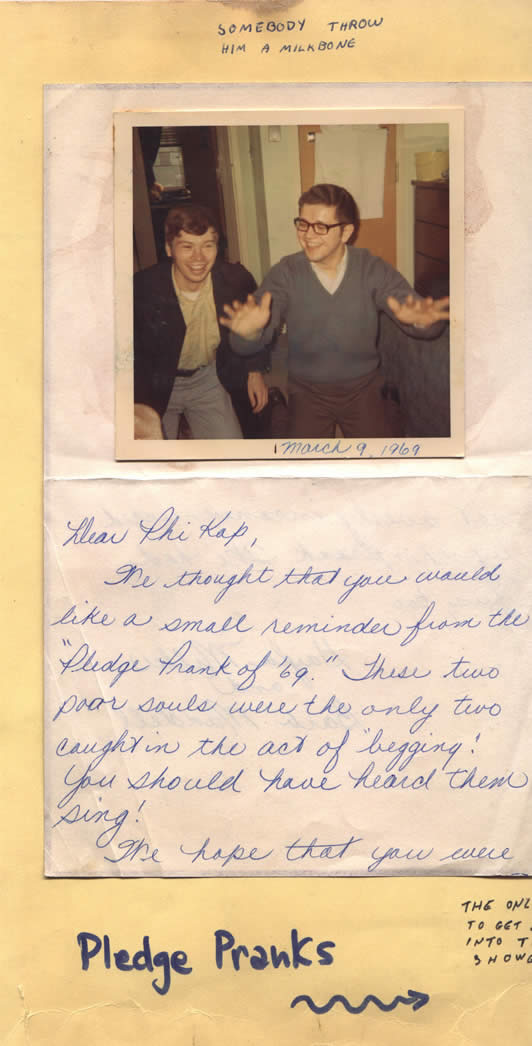 SOMEBODY THROW
HIM A MILKBONE
March 9, 1969
Dear Phi Kap,
We thought that you would
like a small reminder from the
"Pledge Prank of '69." These two
poor souls were the only two
caught in the act of "begging!
You should have heard them
sing!
We hope that you were
THE ONL
TO GET
INTO T
SHOW
Pledge Pranks